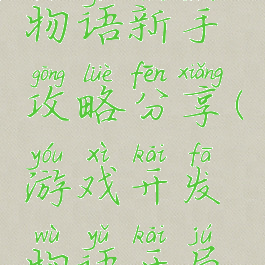 物语新手
gōng lüè fēn xiǎng
攻略分享(
yóu xì kāi fā
游戏开发
wù yǔ kāi jú
物语开局